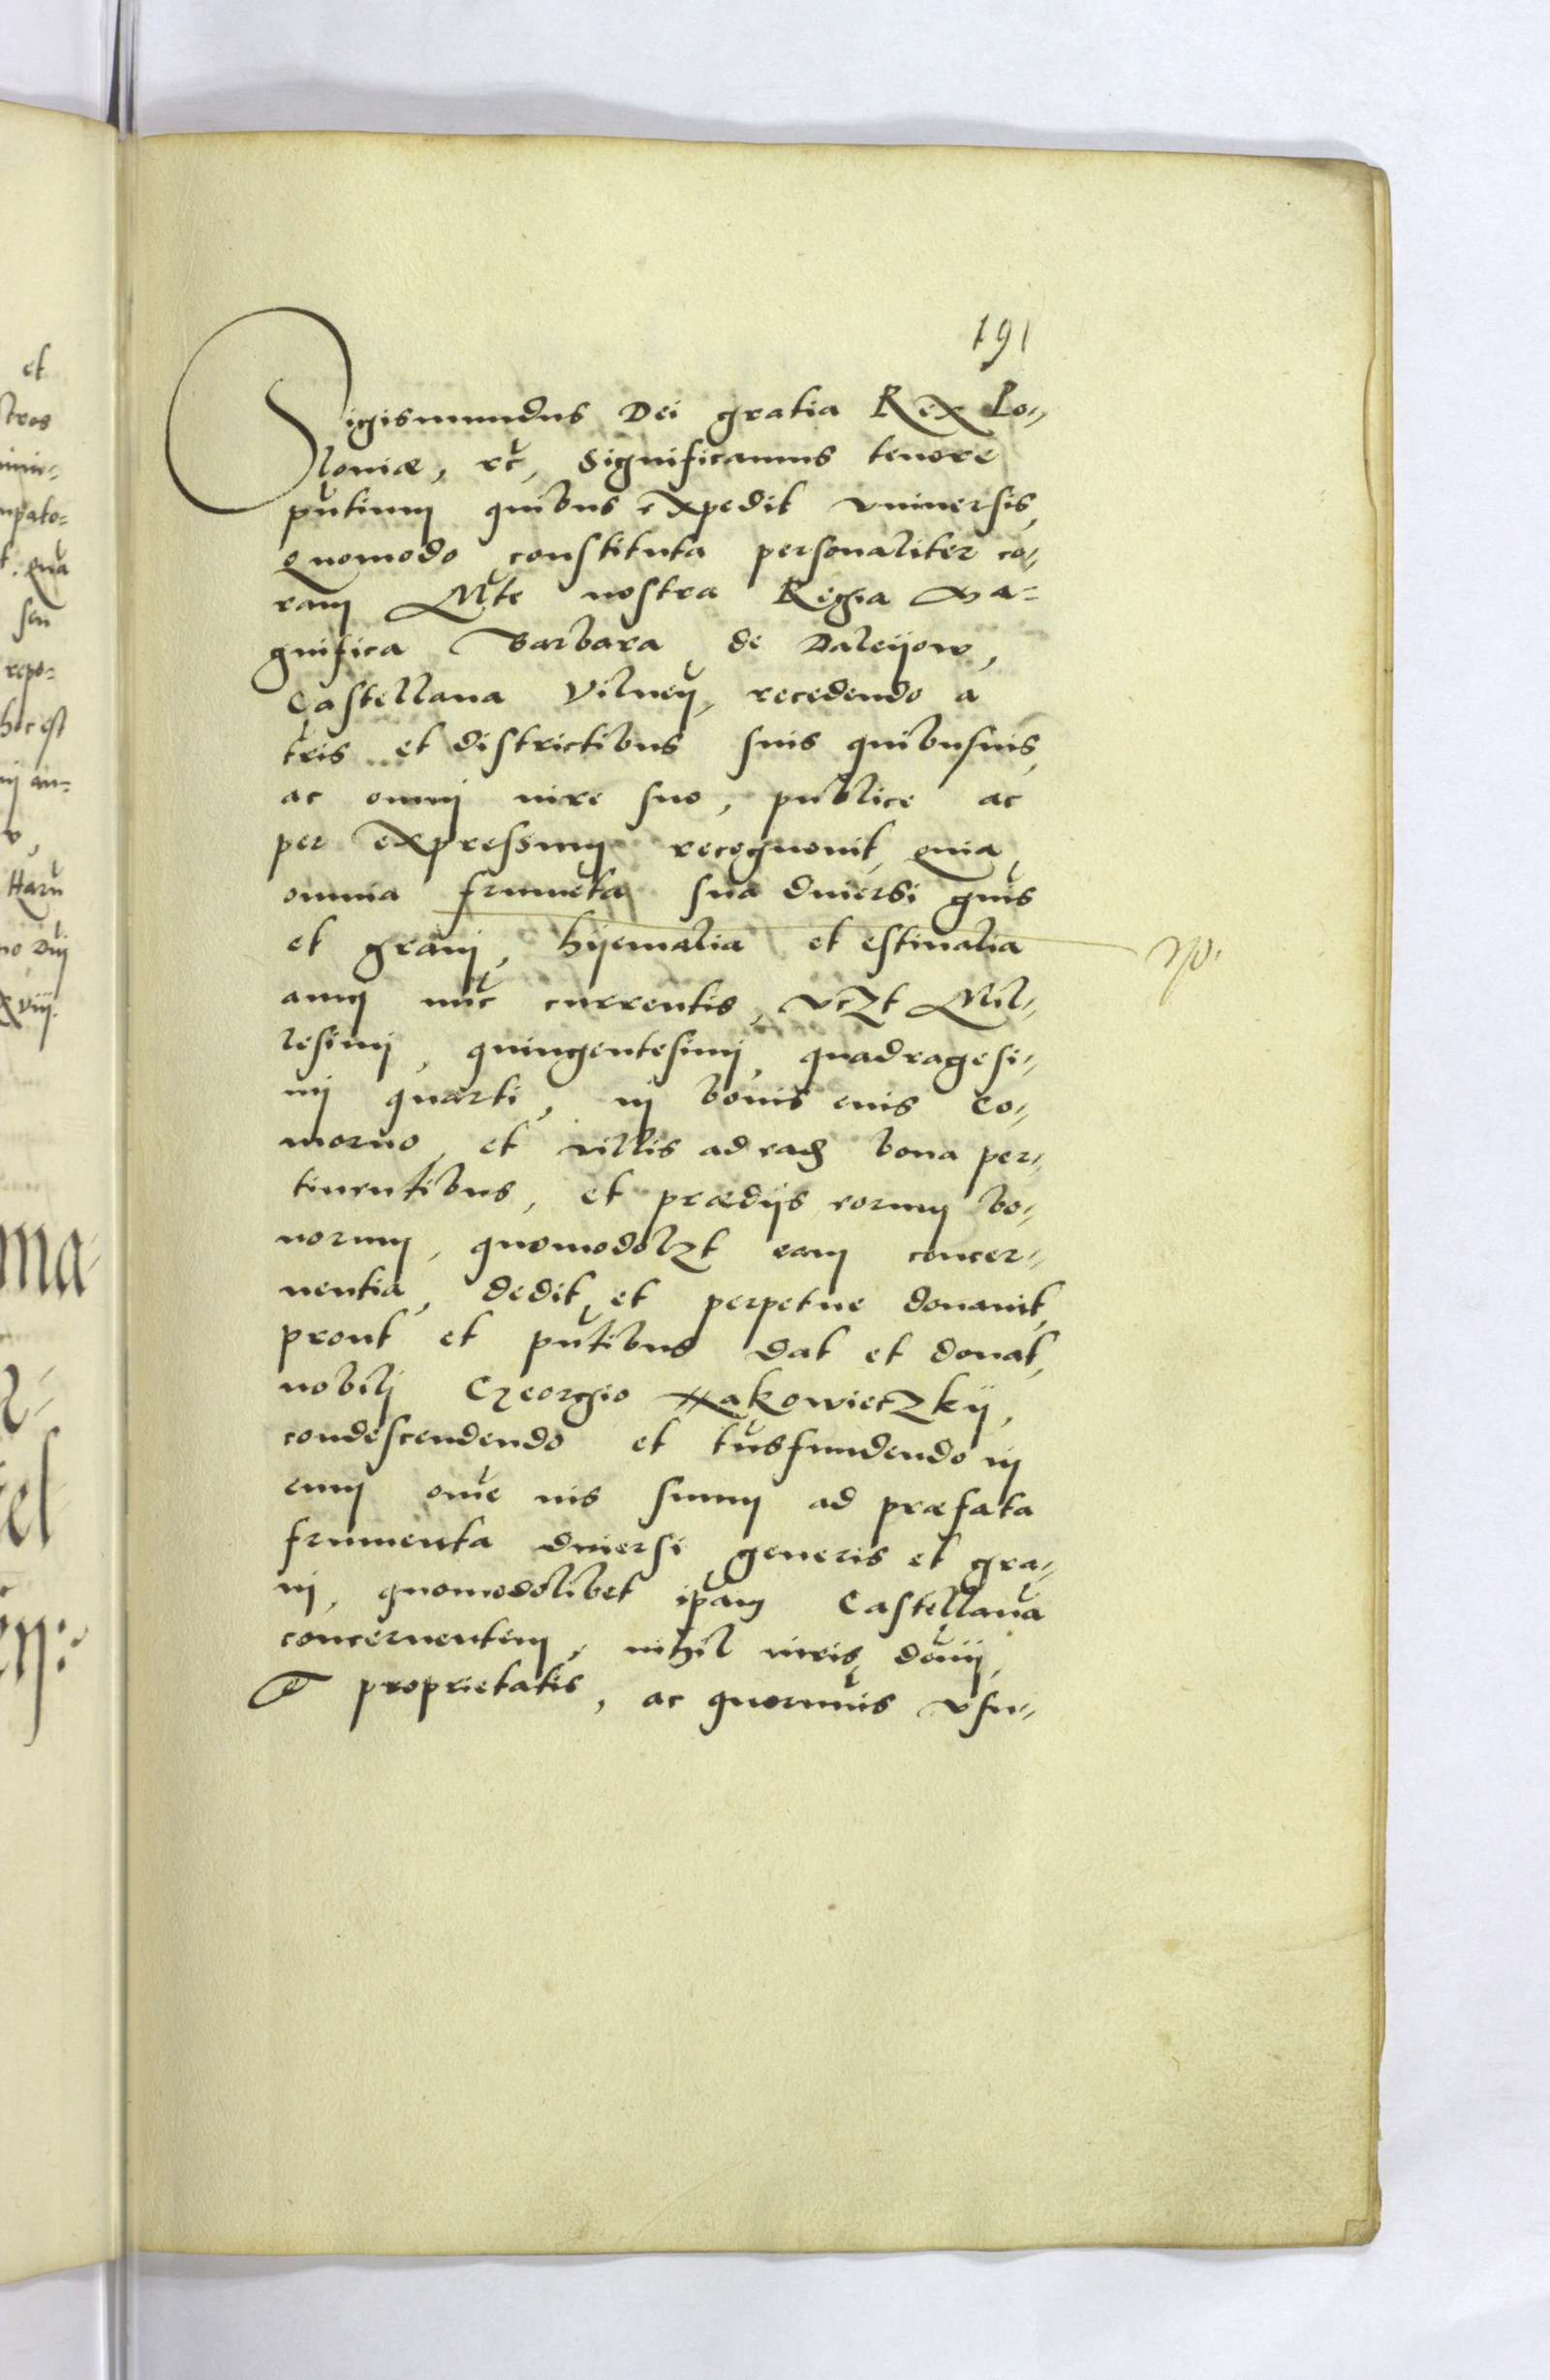 191
Sigismundus Dei gratia Rex Po-
loniæ, rc̃, Significamus tenore
pñtium quibus expedit vniuersis,
Quomodo constituta personaliter co-
ram Mte nostra Regia Ma=
gnifica Barbara de Daleyow,
Castellana Vilneñ, recedendo a
tr̃is et districtibus suis quibusuis,
ac omni iure suo, publice ac
per expressum recognouit, quia
omnia frumẽta sua diuersi gñis
et grani, hyemalia et estiualia
anni nũc currentis, vczt Mil-
lesimi, quingentesimi, quadragesi-
mi quarti, in bonis eius Co-
morno, et villis ad eadẽ bona per-
tinentibus, et prædijs eorum bo-
norum, quomodolzt eam concer-
nentia, dedit et perpetue donauit,
prout et pñtibus dat et donat,
nobili Georgio Makowieczky,
condescendendo et trãsfundendo in
eum om̃e ius suum ad præfata
frumenta diuersi generis et gra-
ni, quomodolibet ip̃am Castellanã
concernentem, nihil iuris, dom̃ij,
et proprietatis, ac quorumuis vsu-
et
stros
mpato=
t. Quia
seu
repo=
hoc est
ni an=
xviij.
ma-